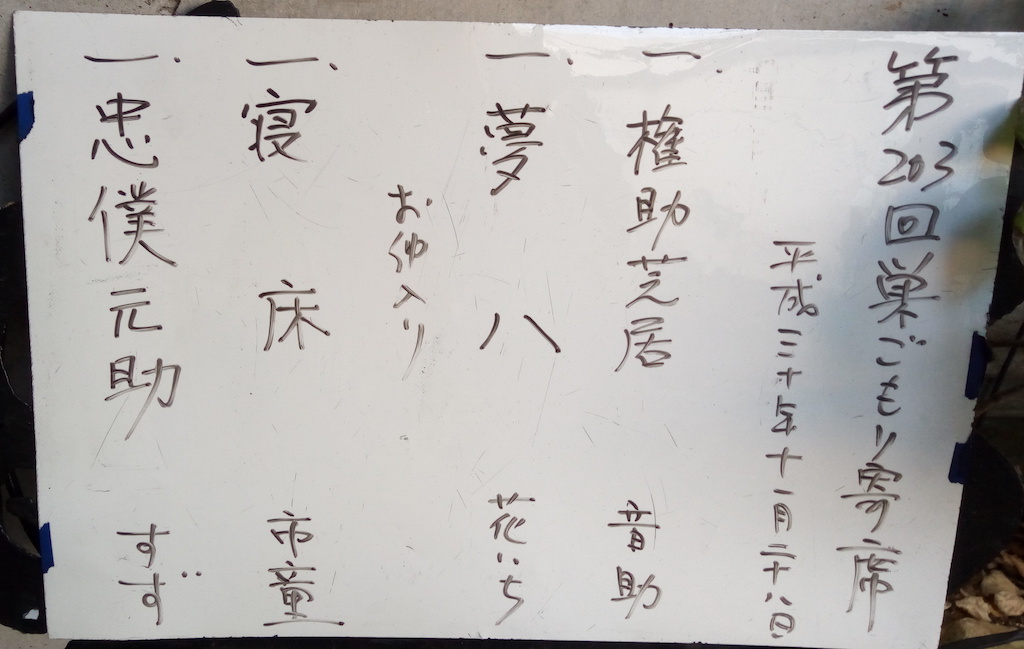 第203回巣ごもり寄席
平成三十年十一月二十八日
一、権助芝居 音助
一、夢八 花いち
お仲入り
一、寝床 市童
一、忠僕元助 すず